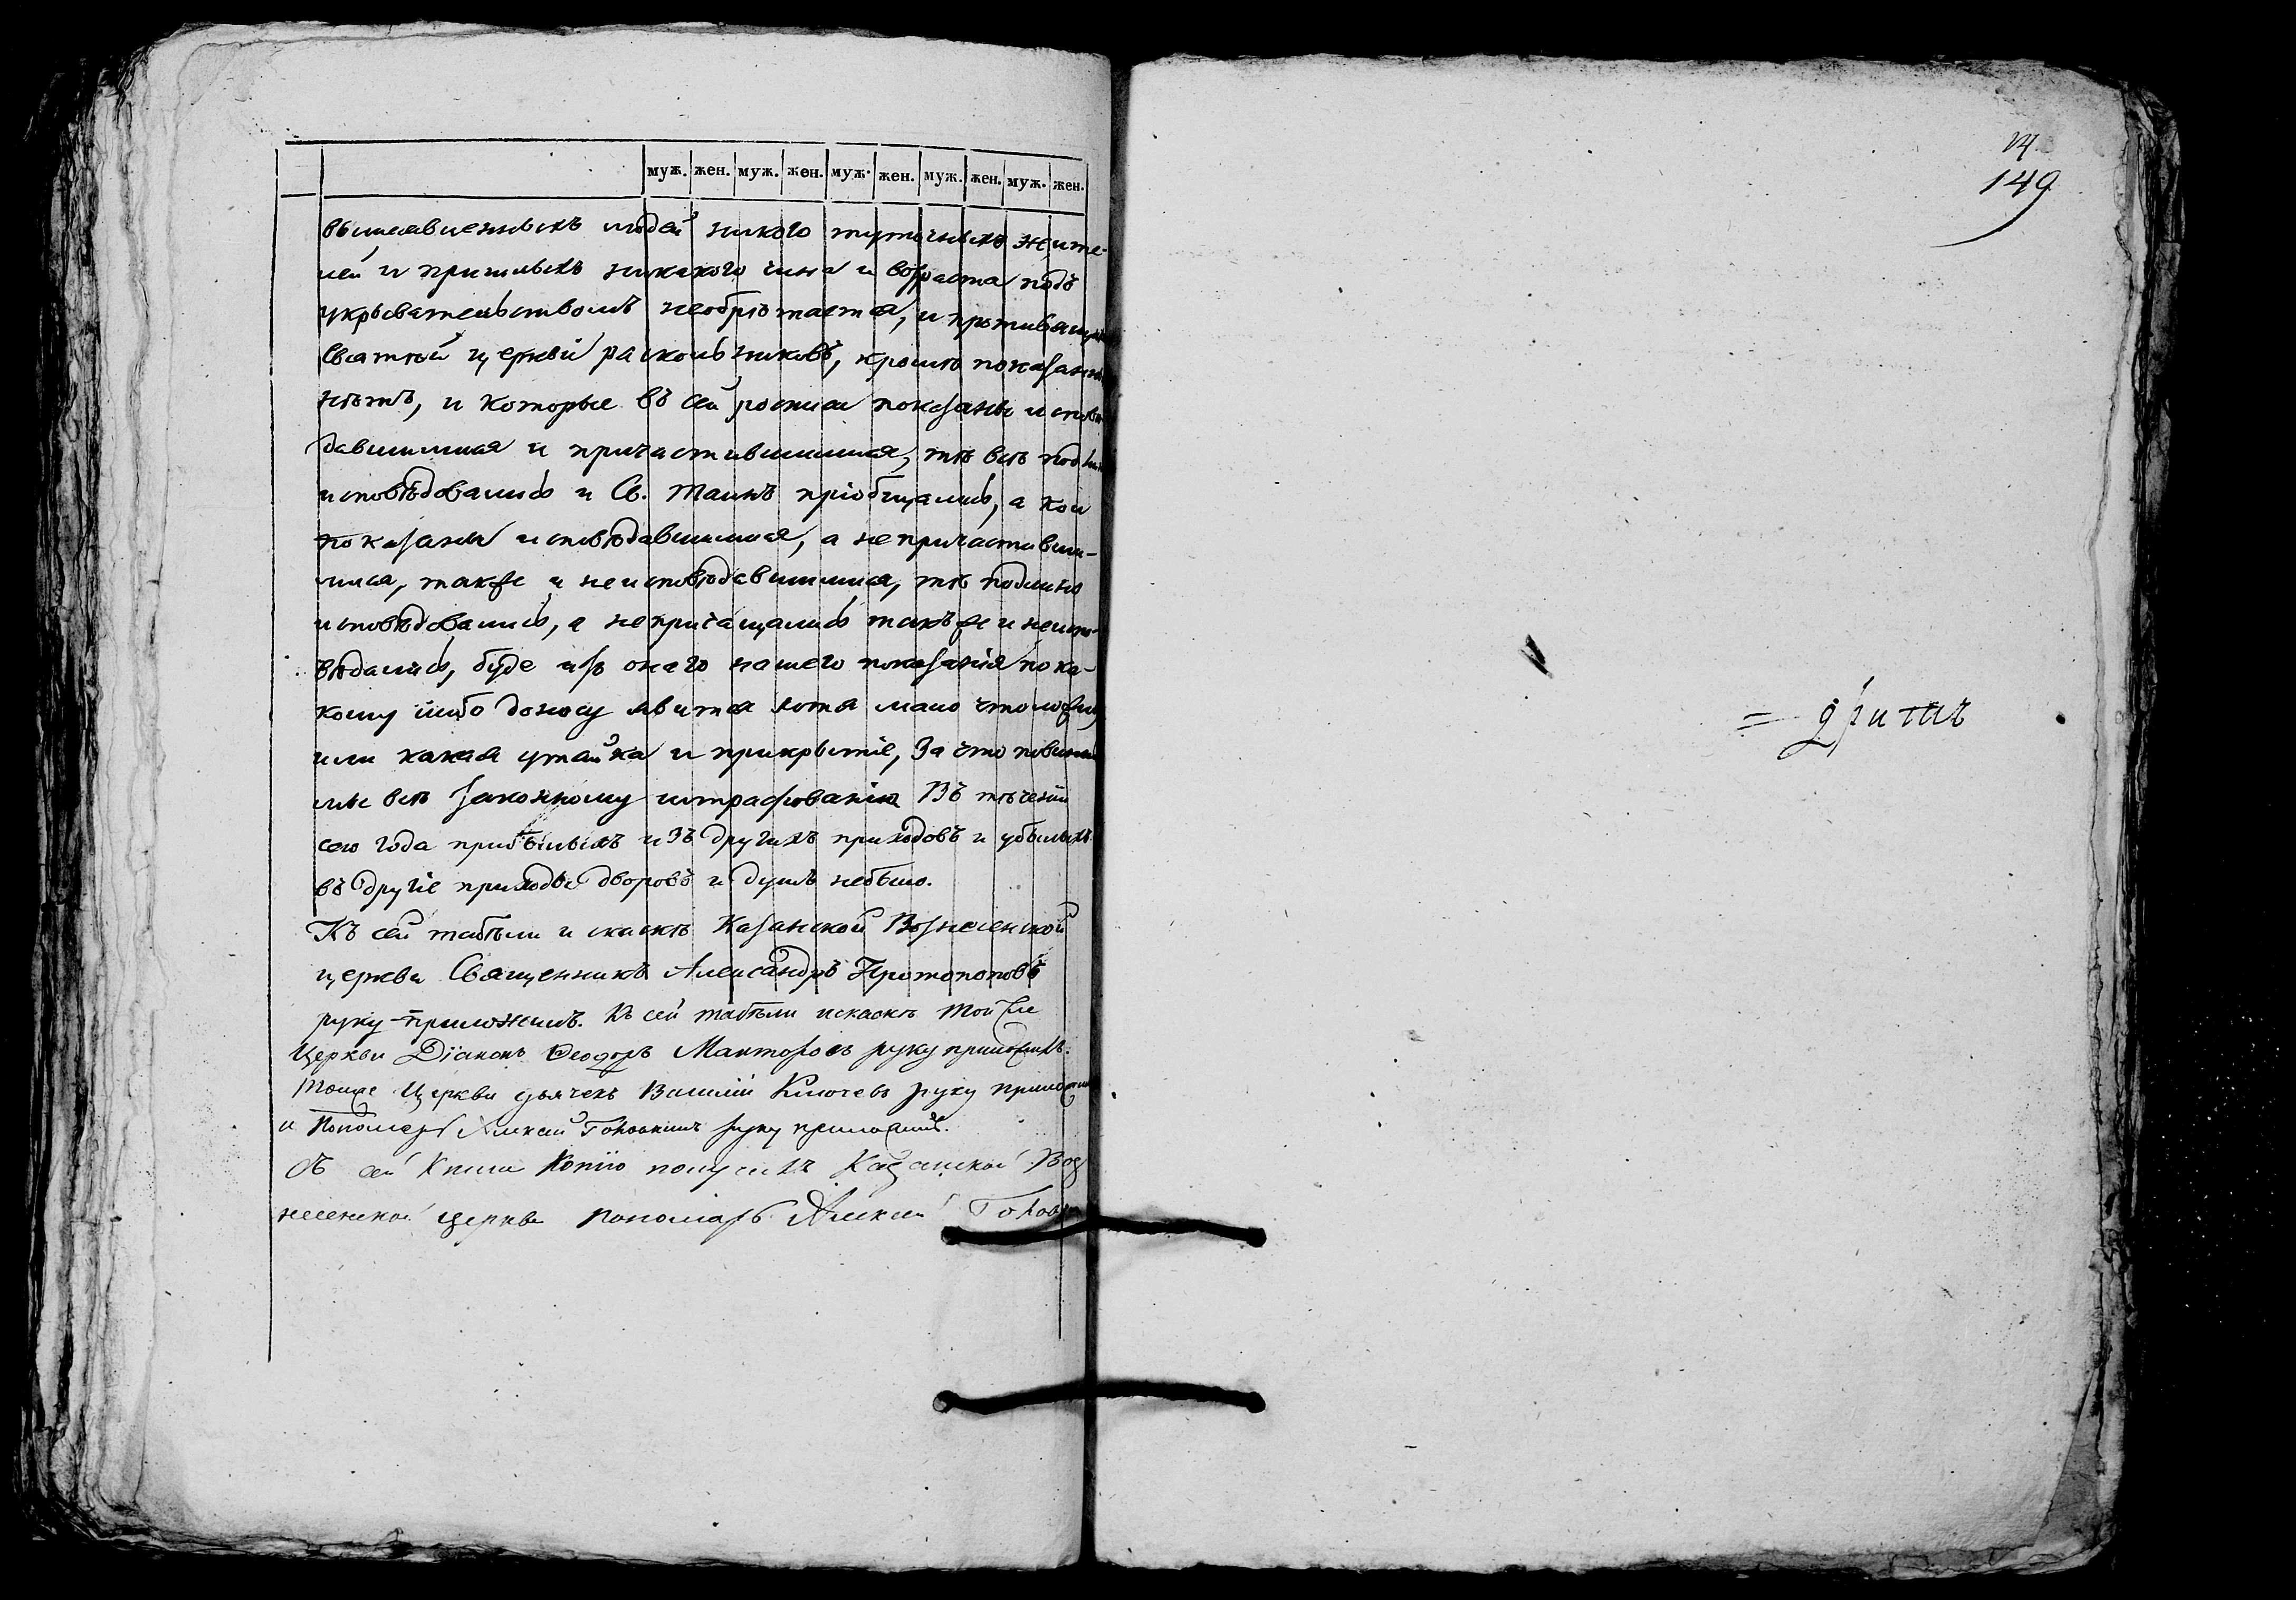 муж. жен. муж. жен. муж. жен. муж. жен. муж. жен.
вышеявленныхъ людей никого тутошныхъ жите-
лей и пришлыхъ никакого чина и возраста подъ
укрывательствомъ необрѣтается, и противящихся
Святѣй церкви раскольниковъ, кромѣ показанныхъ
нѣтъ, и которые въ сей росписи показаны исповѣ
давшимися и причастившимися, тѣ всѣ подлинно
исповѣдовались и Св. Таинъ пріобщались, а кои
показаны исповѣдавшимися, а не причастивши-
мися, также и неисповѣдавшимися, тѣ подлинно
исповѣдовались, а непричащались такъже и неиспо-
вѣдались, буде изъ онаго нашего показанія по ка-
кому либо доносу явится хотя мало что ложно
или какая утайка и прикрытіе, За что повинны
мы всѣ законному штрафованію Въ теченіи
сего года прибылыхъ изъ другихъ приходовъ и убылыхъ
въ другіе приходы дворовъ и душъ небыло.
Къ сей табѣли и скаскѣ Казанской Вознесенской
церкви Священникъ Александръ Протопоповъ
руку приложилъ. Къ сей табѣли искаскѣ той же
Церкви Діаконъ Ѳеодоръ Манторовъ руку приложилъ.
Тойже Церкви дьячекъ Василій Ключевъ руку приложилъ
и Пономарь Алексей руку приложилъ.
Съ сей Книги Копію получилъ Казанской Воз
несенской церкви пономарь Алексей
14
149